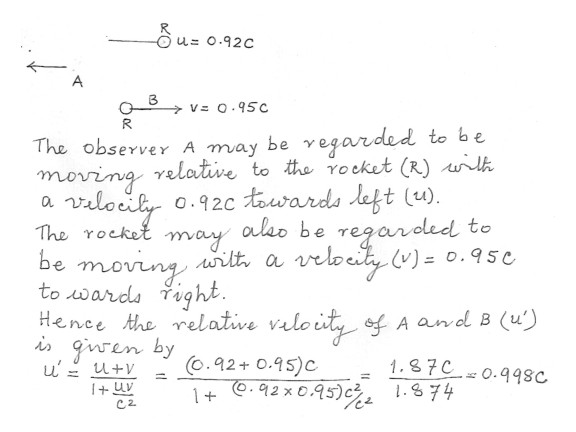 R
u = 0.92C
A
B
v = 0.95C
R
The observer A may be regarded to be
moving relative to the rocket (R) with
a velocity 0.92C towards left (u).
The rocket may also be regarded to
be moving with a velocity (v) = 0.95C
towards right.
Hence the relative velocity of A and B (u')
is given by
u' = u+v / 1+ uv/c2 = (0.92+0.95)C / 1+ (0.92x0.95)c2/c2 = 1.87C / 1.874 = 0.998C